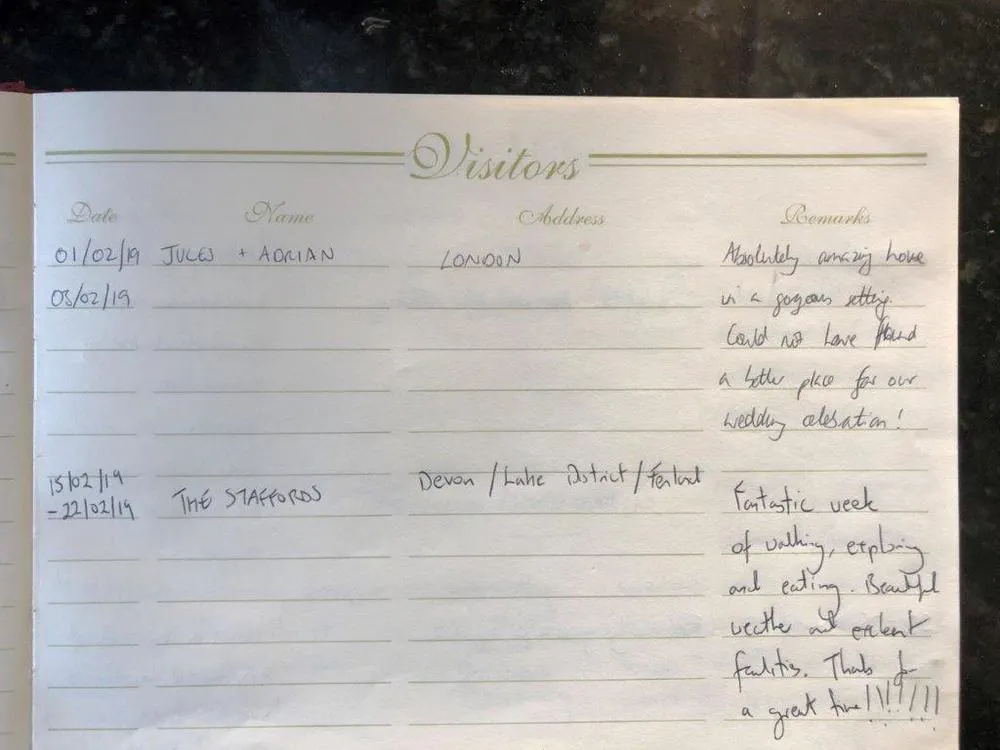 Visitors
Date Name Address Remarks
01/02/19 JULES + ADRIAN LONDON Absolutely amazing house
03/02/19 in a gorgeous setting.
Could not have found
a better place for our
wedding celebration!
15/02/19 Devon / Lake District /
- 22/02/19 THE STAFFORDS Fantastic week
of walking, exploring
and eating. Beautiful
weather and excellent
facilities. Thanks for
a great time!!!!!!!